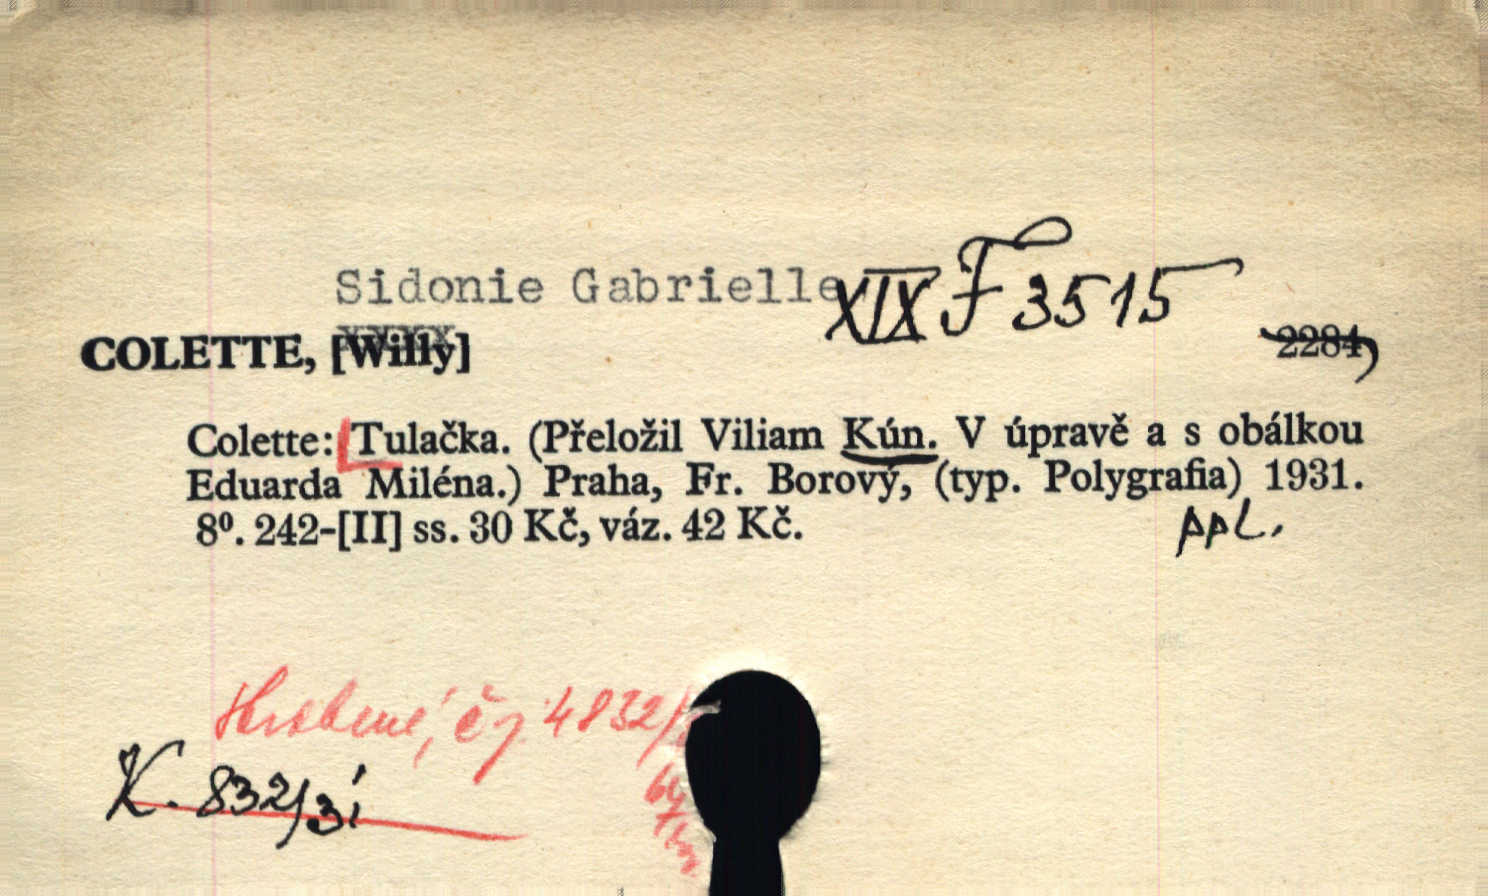 Sidonie Gabrielle XIX F 3515
COLETTE, [Willy] 2284
Colette: Tulačka. (Přeložil Viliam Kún. V úpravě a s obálkou
Eduarda Miléna.) Praha, Fr. Borový, (typ. Polygrafia) 1931.
8⁰. 242-[II] ss. 30 Kč, váz. 42 Kč.
ppl.
čj 4832/
K. 832/31